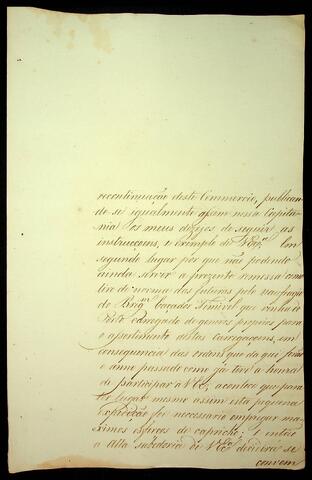 recontinuação deste Commercio, publican
do se igualmente assim nessa Capita
nia os meus dezejos de seguir as
instrucoens, e exemplo de V Ex.ª Em
segundo lugar por que não podendo
ainda servir a prezente remessa como
tivo de norma das futuras pelo naufragio
do Brig.m Caçador Temivel que vinha do
carregado de generos proprios para
o apuntamento destas carregaçoens, em
consequencia das ordens que da qui forão
o anno passado como já tive a honra
de participar à V Eª; acontece que para
lugar mesmo assim esta pequena
expedição foi necessario empregar ma
ximos esforços de capricho; e então
a Alta sabedoria de V Eª decidirá se
convem